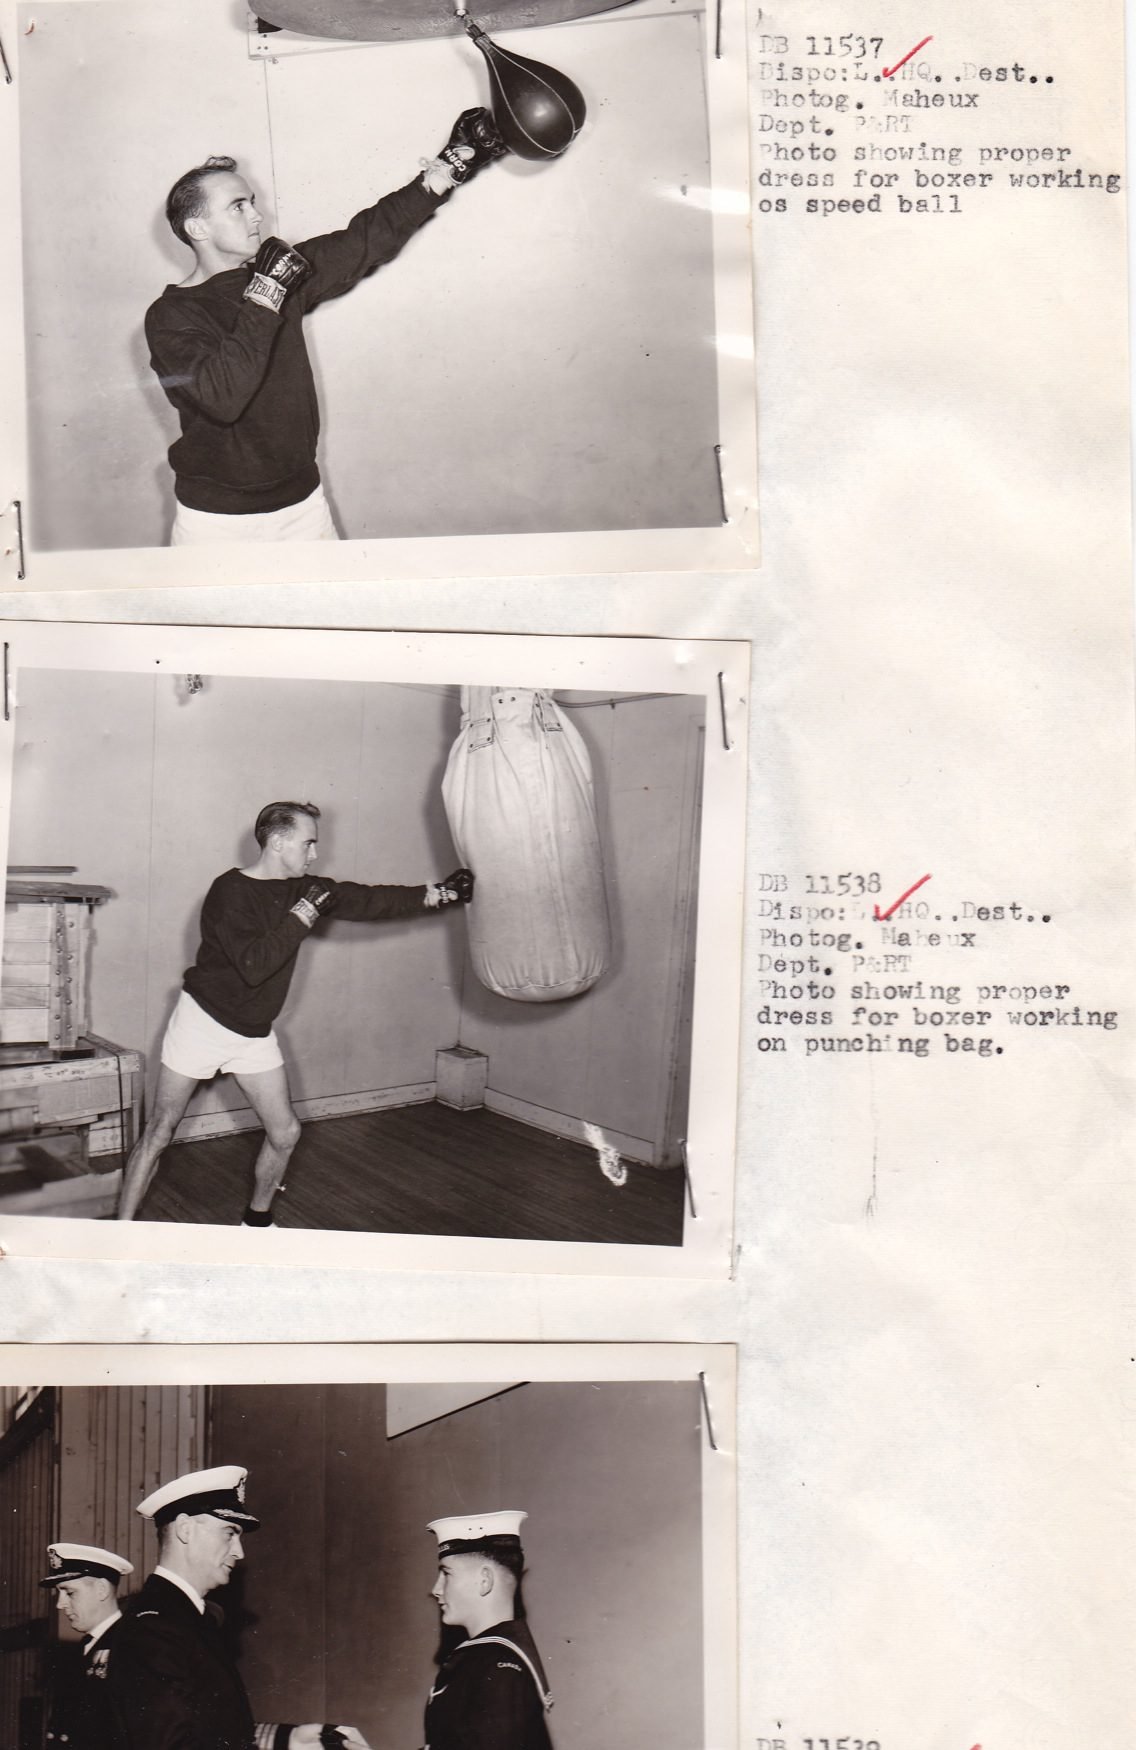 DB 11537
Dispo:L..HQ..Dest..
Photog. Maheux
Dept. P&RT
Photo showing proper
dress for boxer working
os speed ball
EVERLAST
DB 11538
Dispo:L..HQ..Dest..
Photog. Maheux
Dept. P&RT
Photo showing proper
dress for boxer working
on punching bag.
CANADA
CANADA
DB 11539